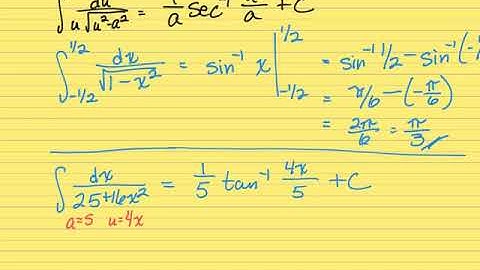 ∫ du / u√(u²-a²) = 1/a sec⁻¹ u/a + C
∫_{-1/2}^{1/2} dx / √(1-x²) = sin⁻¹ x |_{-1/2}^{1/2} = sin⁻¹ 1/2 - sin⁻¹(-1/
= π/6 - (-π/6)
= 2π/6 = π/3
∫ dx / 25+16x² = 1/5 tan⁻¹ 4x/5 + C
a=5 u=4x